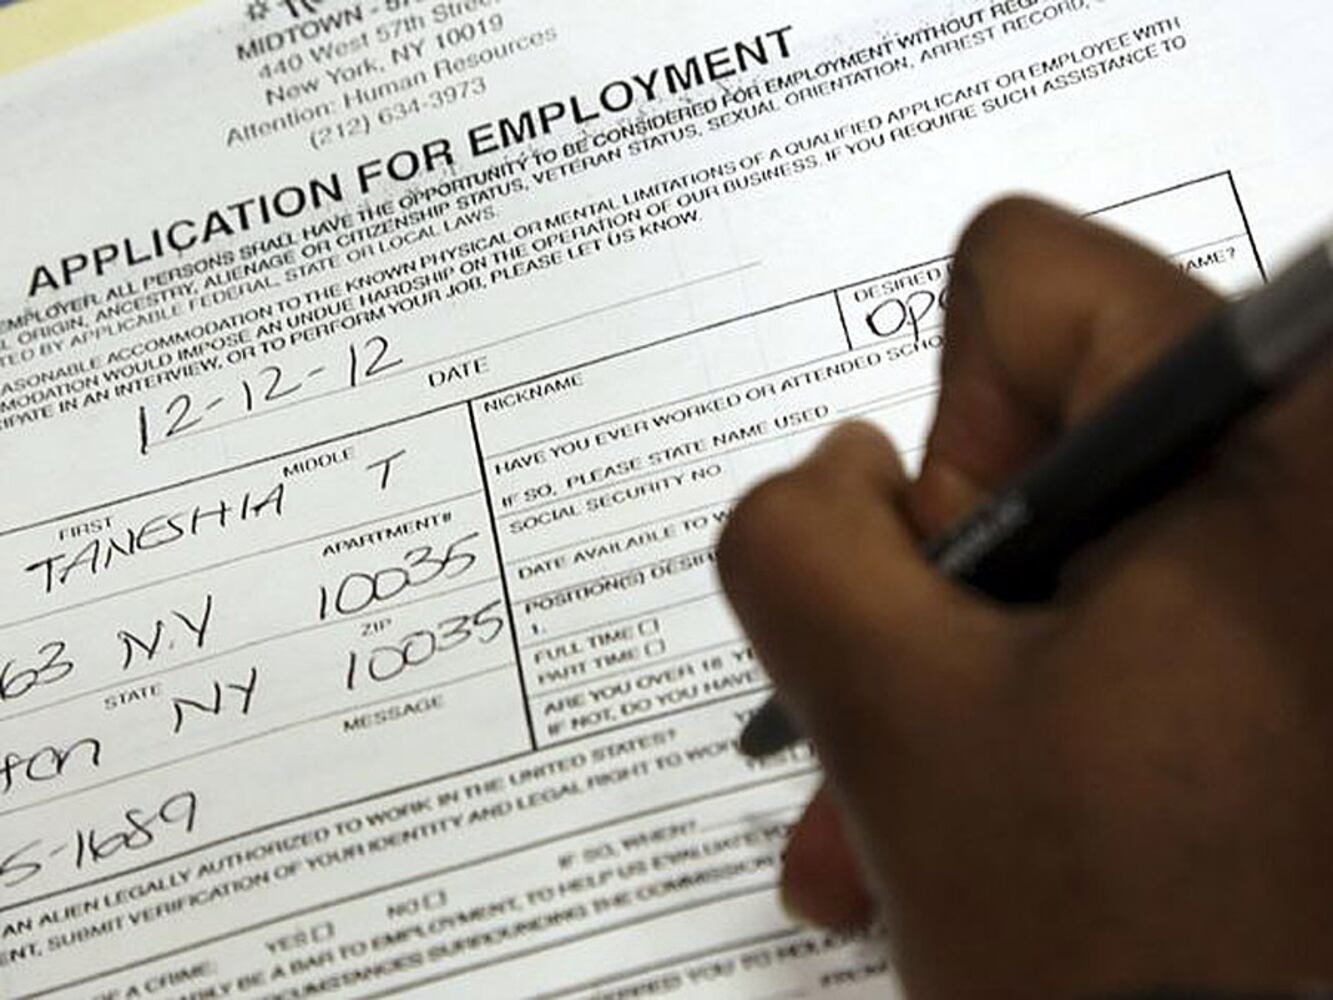 MIDTOWN - 57
440 West 57th Stree
New York, NY 10019
Attention: Human Resources
(212) 634-3973
APPLICATION FOR EMPLOYMENT
EMPLOYER, ALL PERSONS SHALL HAVE THE OPPORTUNITY TO BE CONSIDERED FOR EMPLOYMENT WITHOUT REG
L ORIGIN, ANCESTRY, ALIENAGE OR CITIZENSHIP STATUS, VETERAN STATUS, SEXUAL ORIENTATION, ARREST RECORD,
TED BY APPLICABLE FEDERAL, STATE OR LOCAL LAWS.
ASONABLE ACCOMMODATION TO THE KNOWN PHYSICAL OR MENTAL LIMITATIONS OF A QUALIFIED APPLICANT OR EMPLOYEE WITH
MODATION WOULD IMPOSE AN UNDUE HARDSHIP ON THE OPERATION OF OUR BUSINESS. IF YOU REQUIRE SUCH ASSISTANCE TO
IPATE IN AN INTERVIEW, OR TO PERFORM YOUR JOB, PLEASE LET US KNOW.
12-12-12
DATE
FIRST MIDDLE
TANESHIA T
APARTMENT#
63 N.Y 10035
STATE ZIP
NY 10035
MESSAGE
5-1689
NICKNAME
DESIRED
OP
HAVE YOU EVER WORKED OR ATTENDED SCHO NAME?
IF SO, PLEASE STATE NAME USED
SOCIAL SECURITY NO
DATE AVAILABLE TO W
POSITION(S) DESIR
1.
FULL TIME
PART TIME
ARE YOU OVER 18 YE
IF NOT, DO YOU HAVE
AN ALIEN LEGALLY AUTHORIZED TO WORK IN THE UNITED STATES?
ENT, SUBMIT VERIFICATION OF YOUR IDENTITY AND LEGAL RIGHT TO WOR
YES NO IF SO, WHEN?
OF A CRIME
BE A BAR TO EMPLOYMENT, TO HELP US EVALUATE YO
CUMSTANCES SURROUNDING THE COMMISSION